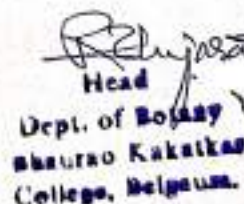 Head
Dept. of Botany
Bhaurao Kakatkar
College, Belgaum.